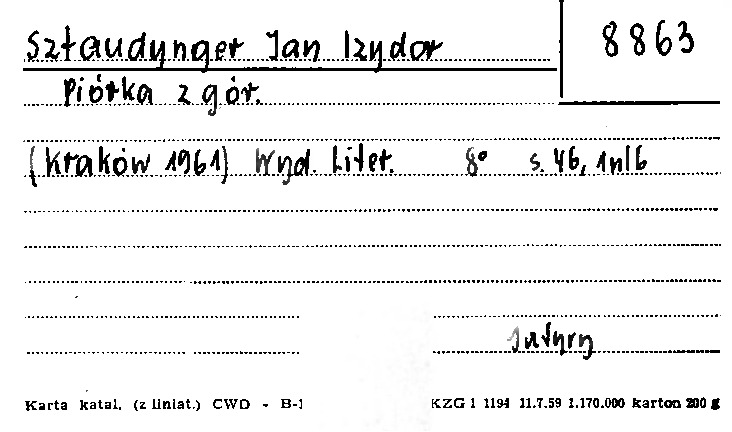 Sztaudynger Jan Izydor
8863
Piórka z gór.
(Kraków 1961) Wyd. Liter. 8° s. 46, 1nlb
Satyry
Karta katal. (z liniat.) CWD - B-1 KZG 1 1194 11.7.59 1.170.000 karton 200 g